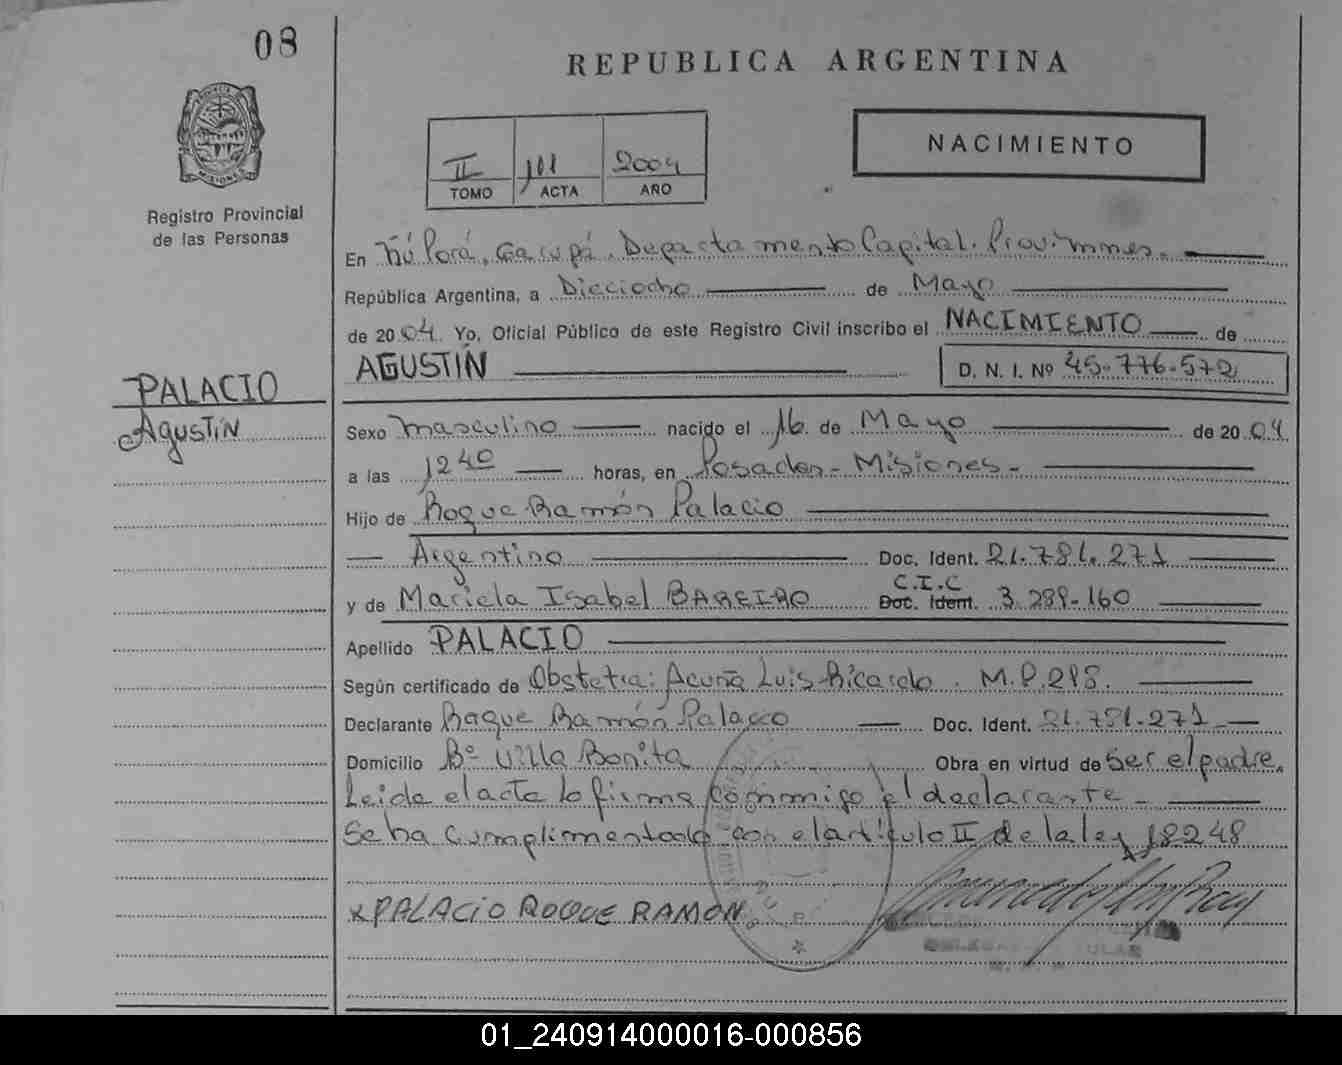 08
REPUBLICA ARGENTINA
NACIMIENTO
II 111 2004
TOMO ACTA AÑO
Registro Provincial
de las Personas
MISIONES
En Ñú Porá, Garupá, Departamento Capital. Prov. Mnes.
República Argentina, a Dieciocho de Mayo
de 2004. Yo, Oficial Público de este Registro Civil inscribo el NACIMIENTO de
AGUSTÍN D. N. I. Nº 45-776-572
PALACIO
Agustín
Sexo masculino nacido el 16 de Mayo de 2004
a las 1240 horas, en Posadas - Misiones -
Hijo de Roque Ramón Palacio
Argentino Doc. Ident. 21.781.271
C.I.C
y de Mariela Isabel BAREIRO Doc. Ident. 3.289-160
Apellido PALACIO
Según certificado de Obstetra: Acuña Luis Ricardo. M.P. 298.
Declarante Roque Ramón Palacio Doc. Ident. 21.781-271
Domicilio Bº Villa Bonita Obra en virtud de ser el padre.
Leida el acta lo firma conmigo el declarante -
Se ha cumplimentado con el artículo II de la ley 18248
x PALACIO ROQUE RAMON
01_240914000016-000856